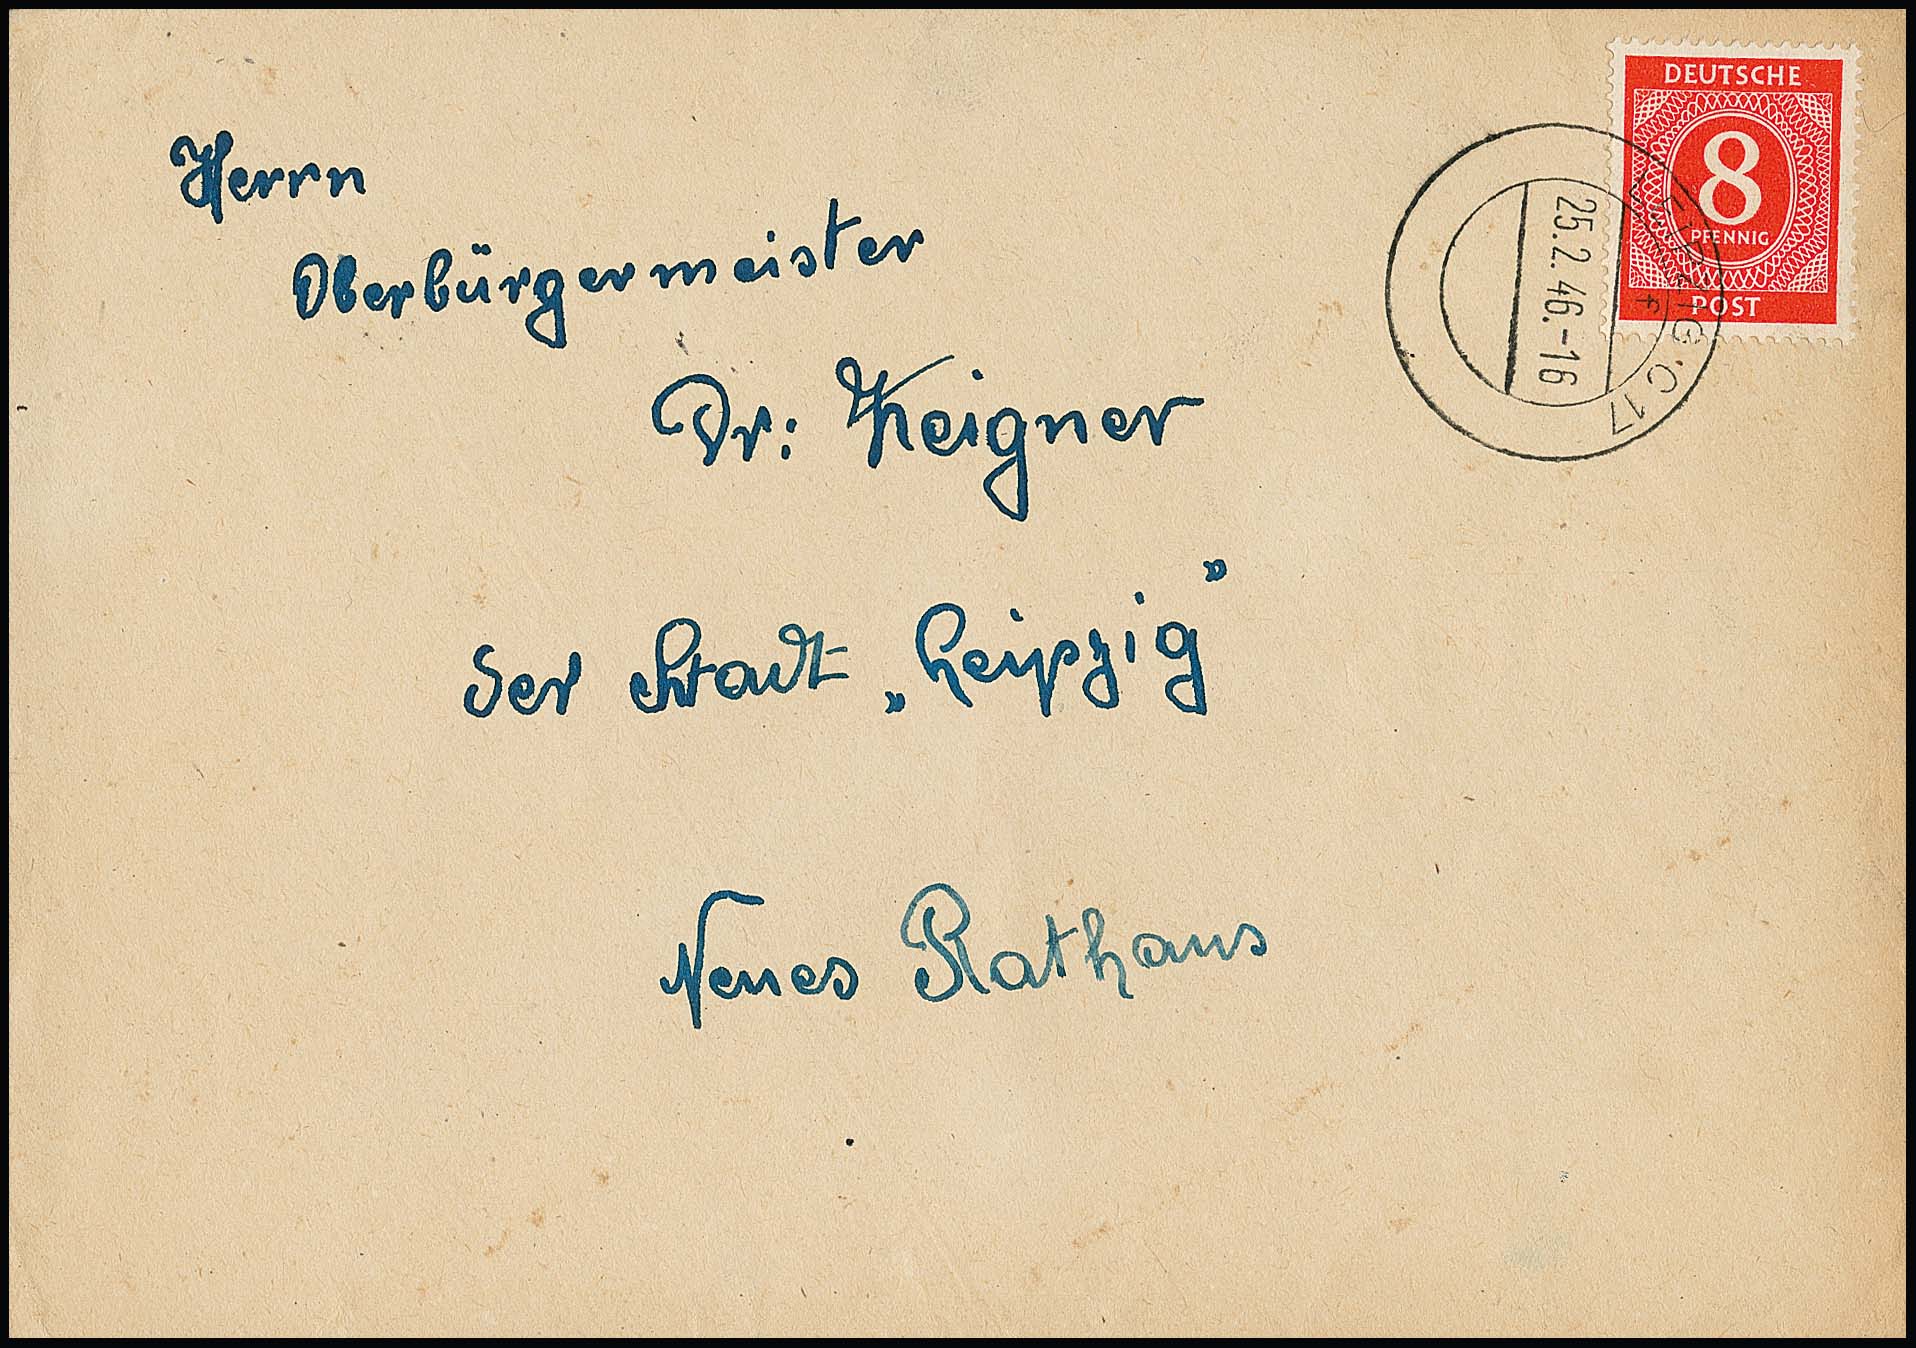 Herrn
Oberbürgermeister
Dr: Zeigner
der Stadt „Leipzig"
Neues Rathaus
DEUTSCHE
8
PFENNIG
POST
LEIPZIG · C 17
25.2.46.-16
f